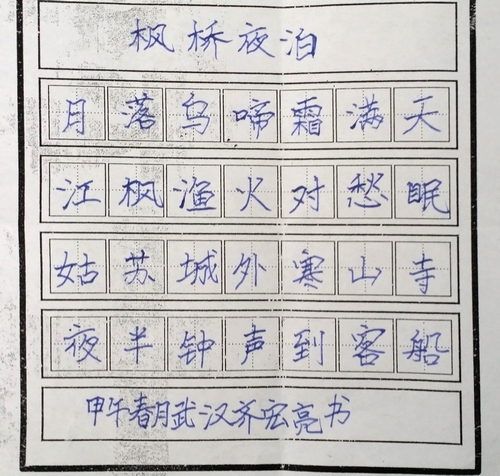 枫桥夜泊
月落乌啼霜满天
江枫渔火对愁眠
姑苏城外寒山寺
夜半钟声到客船
甲午春月武汉齐宏亮书